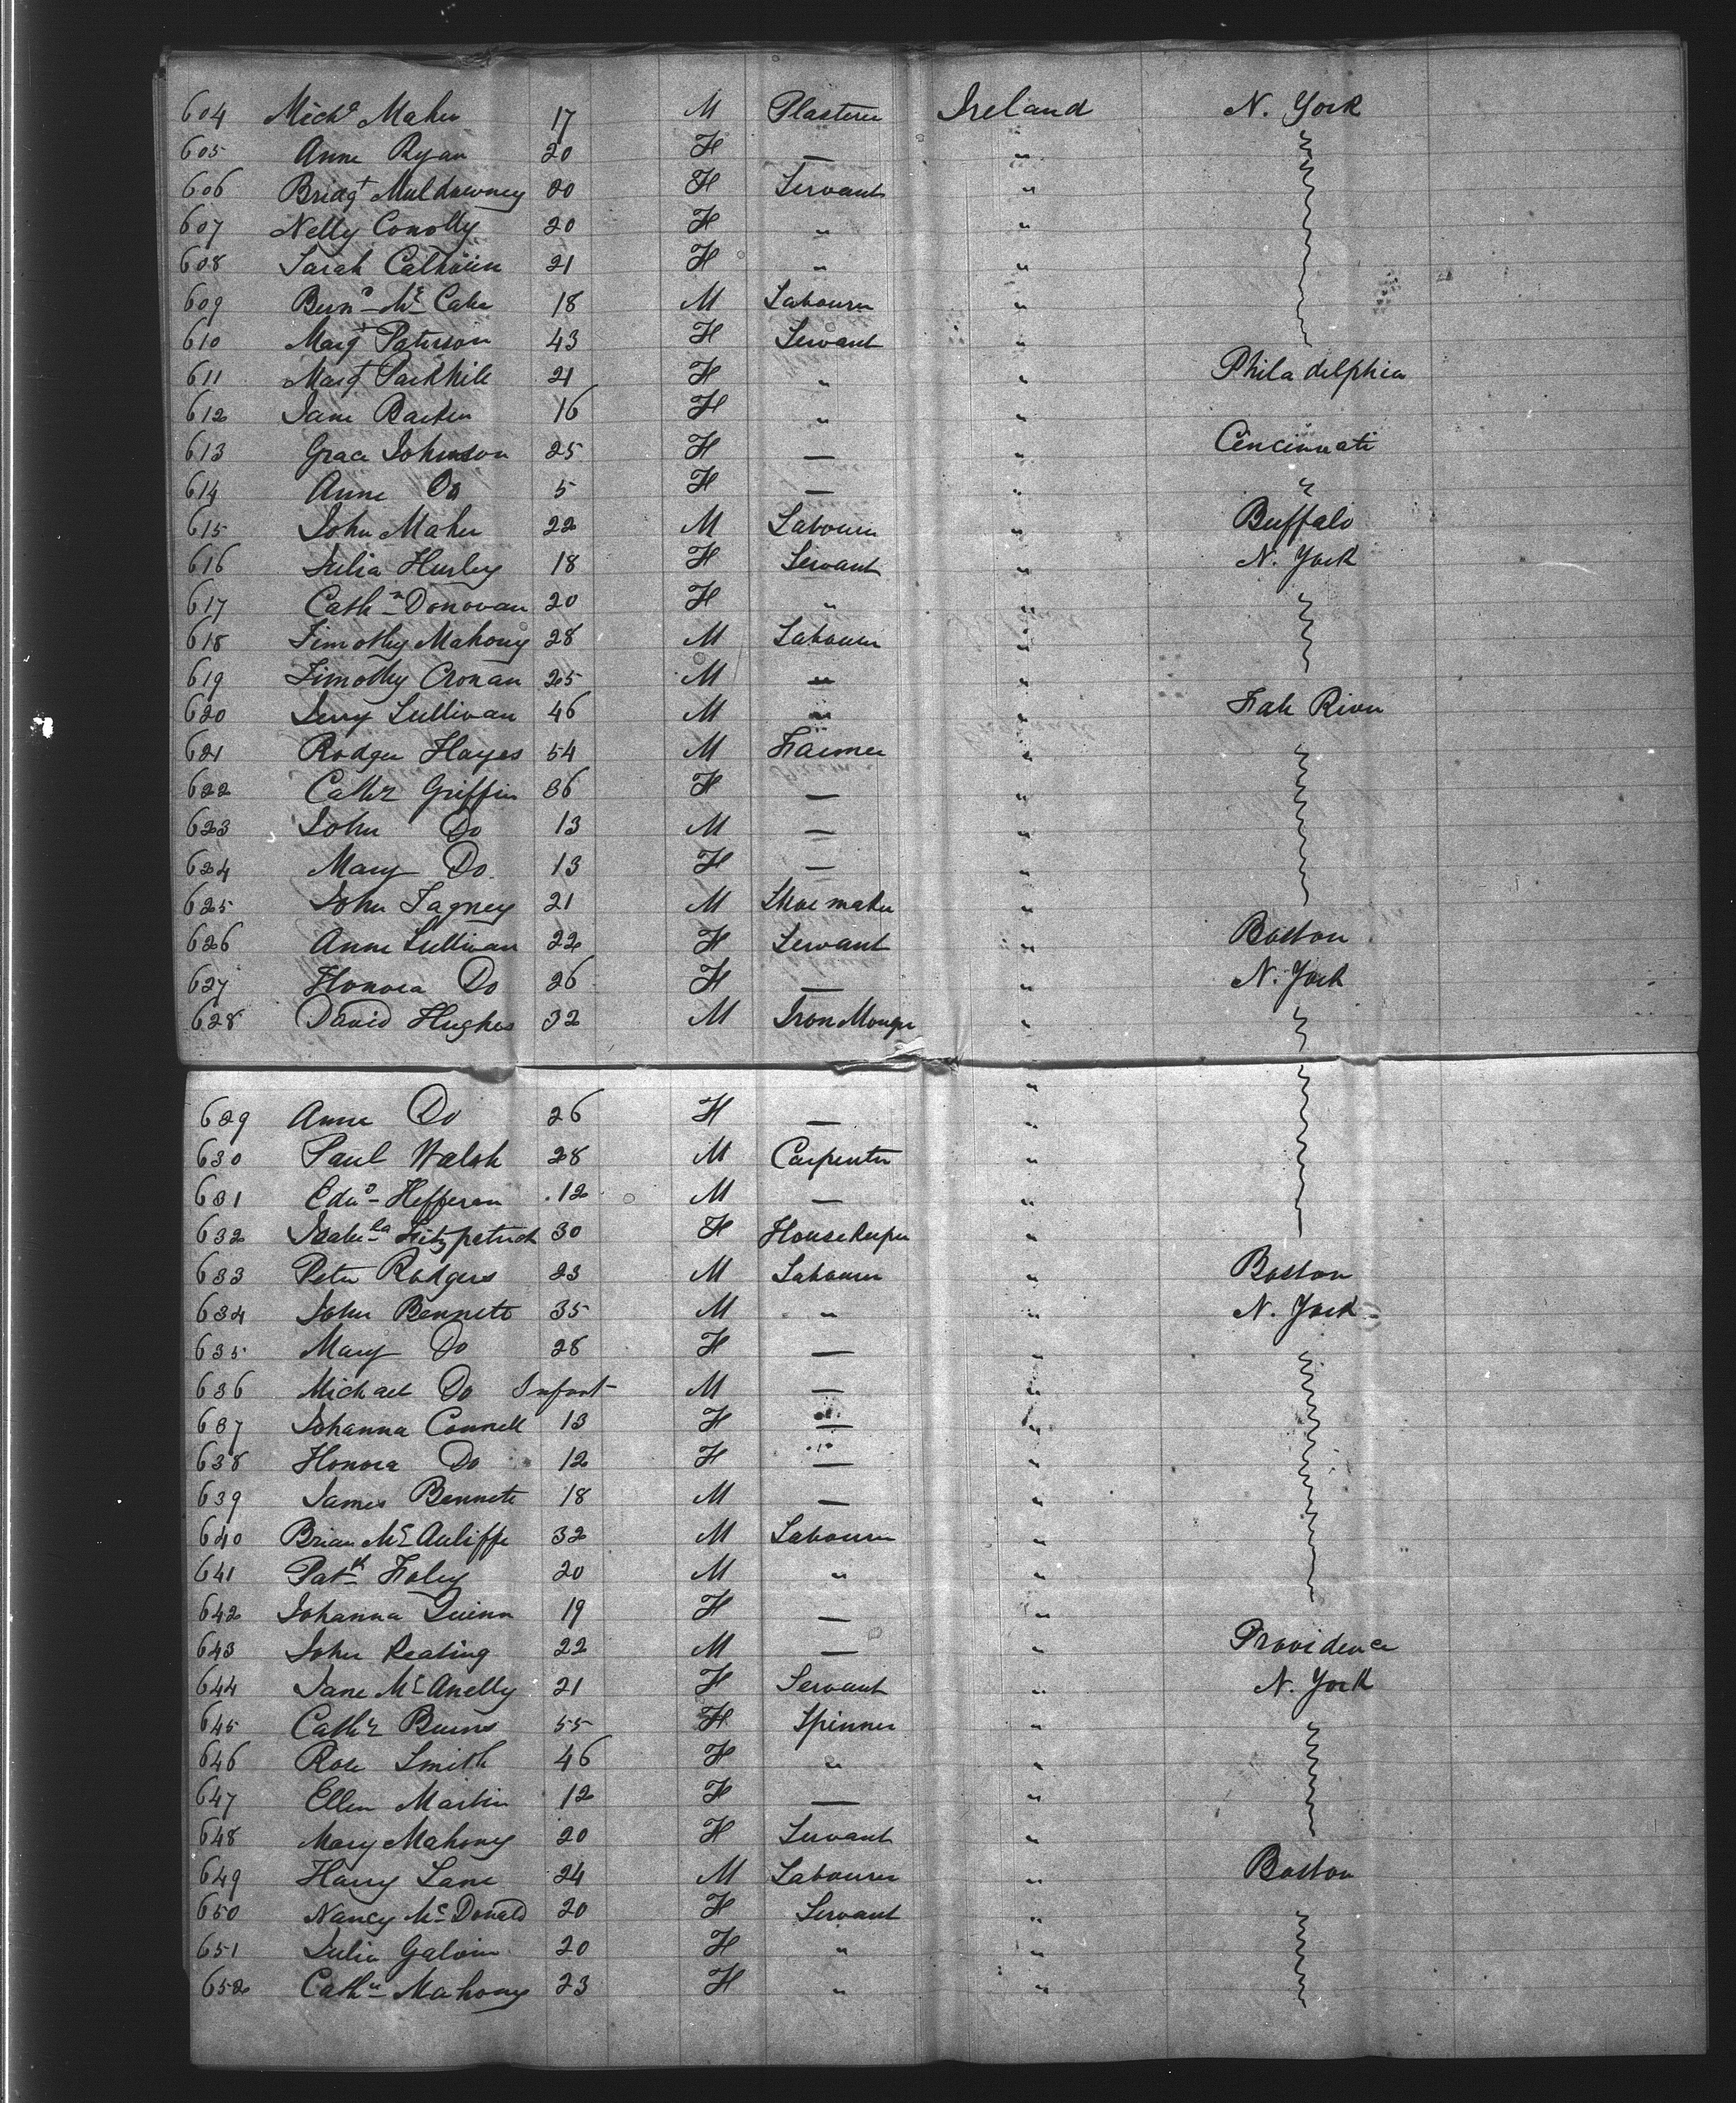 604 Mich^l Maher 17 M Plasterer Ireland N. York
605 Anne Ryan 20 F — "
606 Bridg^t Muldowney 20 F Servant "
607 Nelly Conolly 20 F " "
608 Sarah Calhoun 21 F " "
609 Bern^d McCabe 18 M Labourer "
610 Marg^t Paterson 43 F Servant "
611 Marg^t Parkhill 21 F " " Philadelphia
612 Jane Barker 16 F " "
613 Grace Johnson 25 F — " Cincinnati
614 Anne Do 5 F — " "
615 John Maher 22 M Labourer " Buffalo
616 Julia Hurley 18 F Servant " N. York
617 Cath^n Donovan 20 F " "
618 Timothy Mahony 28 M Labourer "
619 Timothy Cronan 25 M " "
620 Jerry Sullivan 46 M " " Fall River
621 Rodger Hayes 54 M Farmer "
622 Cathr Griffin 36 F — "
623 John Do 13 M — "
624 Mary Do 13 F — "
625 John Tagney 21 M Shoemaker "
626 Anne Sullivan 22 F Servant " Boston
627 Honora Do 26 F — " N. York
628 David Hughes 32 M Iron Monger "
629 Anne Do 26 F — "
630 Paul Walsh 28 M Carpenter "
631 Edw^d Hefferan 12 M — "
632 Isabe^la Fitzpatrick 30 F Housekeeper "
633 Peter Rodgers 23 M Labourer " Boston
634 John Bennett 35 M " " N. York
635 Mary Do 28 F — "
636 Michael Do Infant M — "
637 Johanna Connell 13 F — "
638 Honora Do 12 F — "
639 James Bennett 18 M — "
640 Brian McAuliffe 32 M Labourer "
641 Pat^k Foley 20 M " "
642 Johanna Quinn 19 F — "
643 John Keating 22 M — " Providence
644 Jane McAnelly 21 F Servant " N. York
645 Cathr Burns 55 F Spinner "
646 Rose Smith 46 F " "
647 Ellen Martin 12 F — "
648 Mary Mahony 20 F Servant "
649 Harry Lane 24 M Labourer " Boston
650 Nancy McDonald 20 F Servant "
651 Julia Galvin 20 F " "
652 Cath^n Mahony 23 F " "